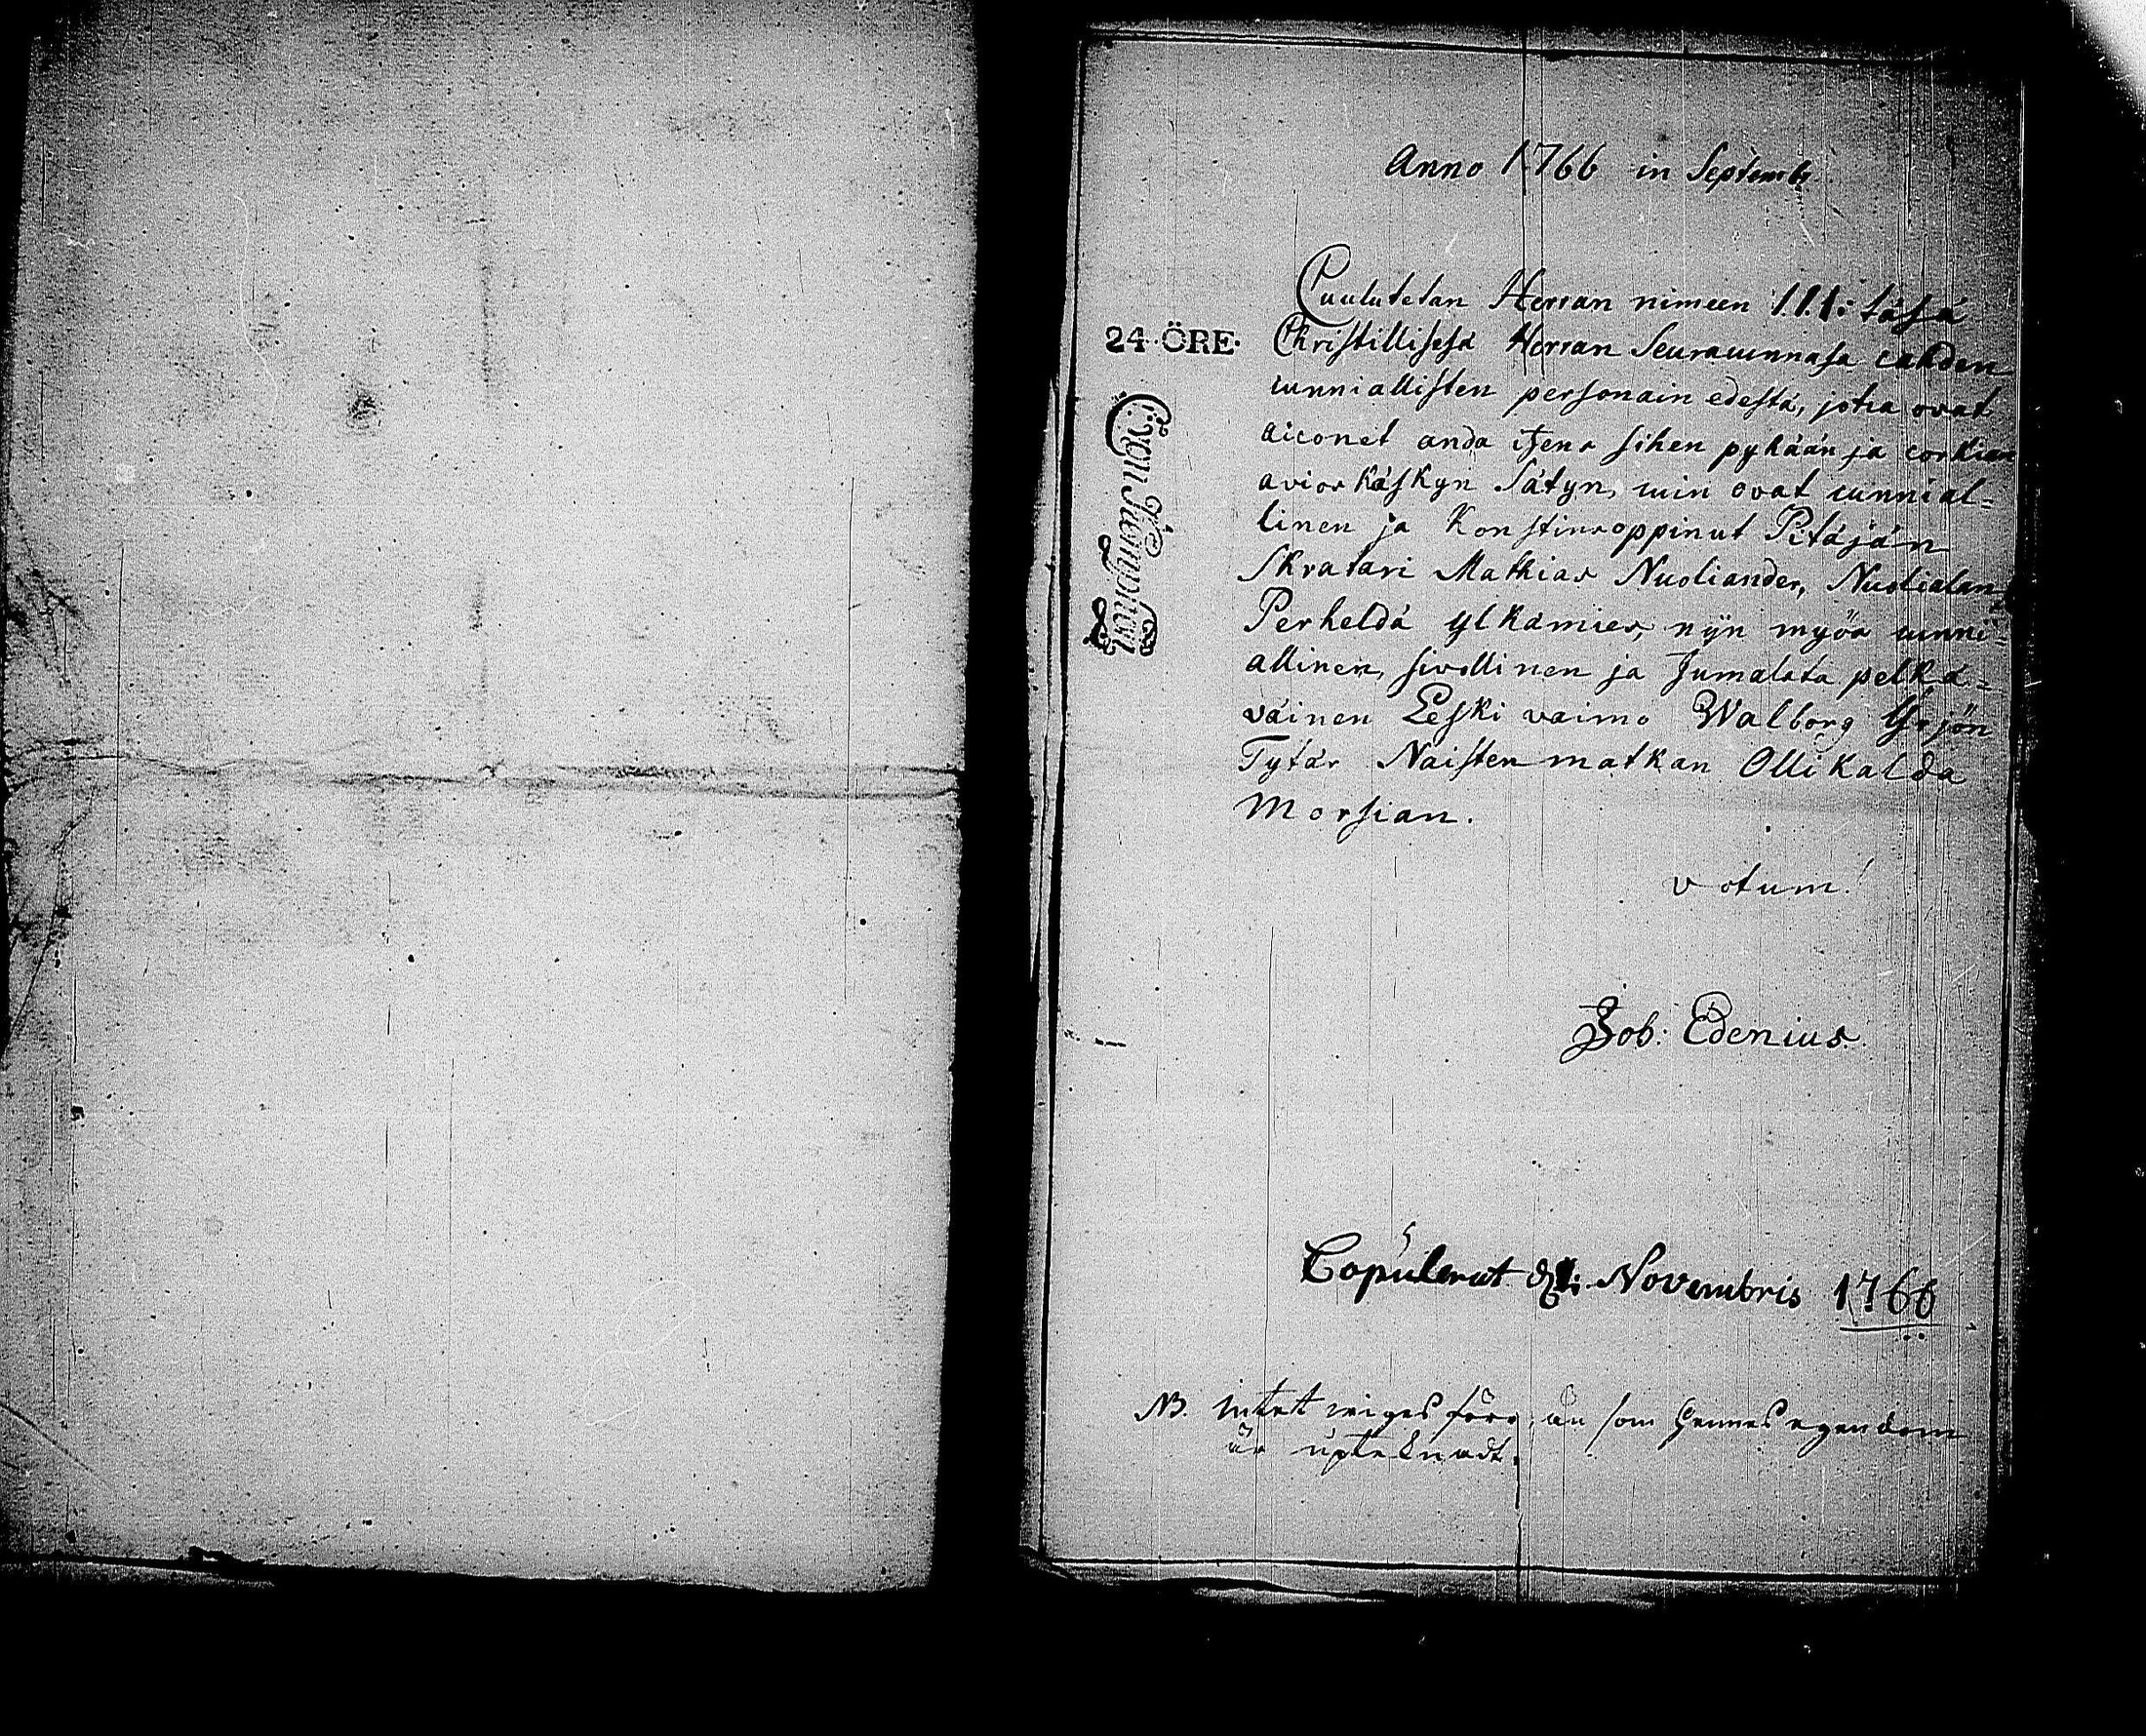 Anno 1766 in Septembr
Cuulutetan Herran nimeen 1.1.1: täsä
24·ÖRE·
Christillisesä Herran Seuracunnasa cahden
cunniallisten personain edestä, jotca ovat
aiconet anda itzens sihen pyhään ja corkian
avios käskyn Sätyn, cuin ovat cunnial=
linen ja Konstinsoppinut Pitäjän
Skratari Mathias Nuoliander, Nuolialan
Perheldä ylkämies, nijn myös cunni=
allinen, sivollinen ja Jumalata pelkä=
väinen Leski vaimo Walborg Yrjön
Tytär Naisten matkan Ollikalda
Morsian.
votum!
Job: Edenius.
Copulerat Novembris 1766
NB. intet viges förr, än som hennes egendom
är upteknadt.